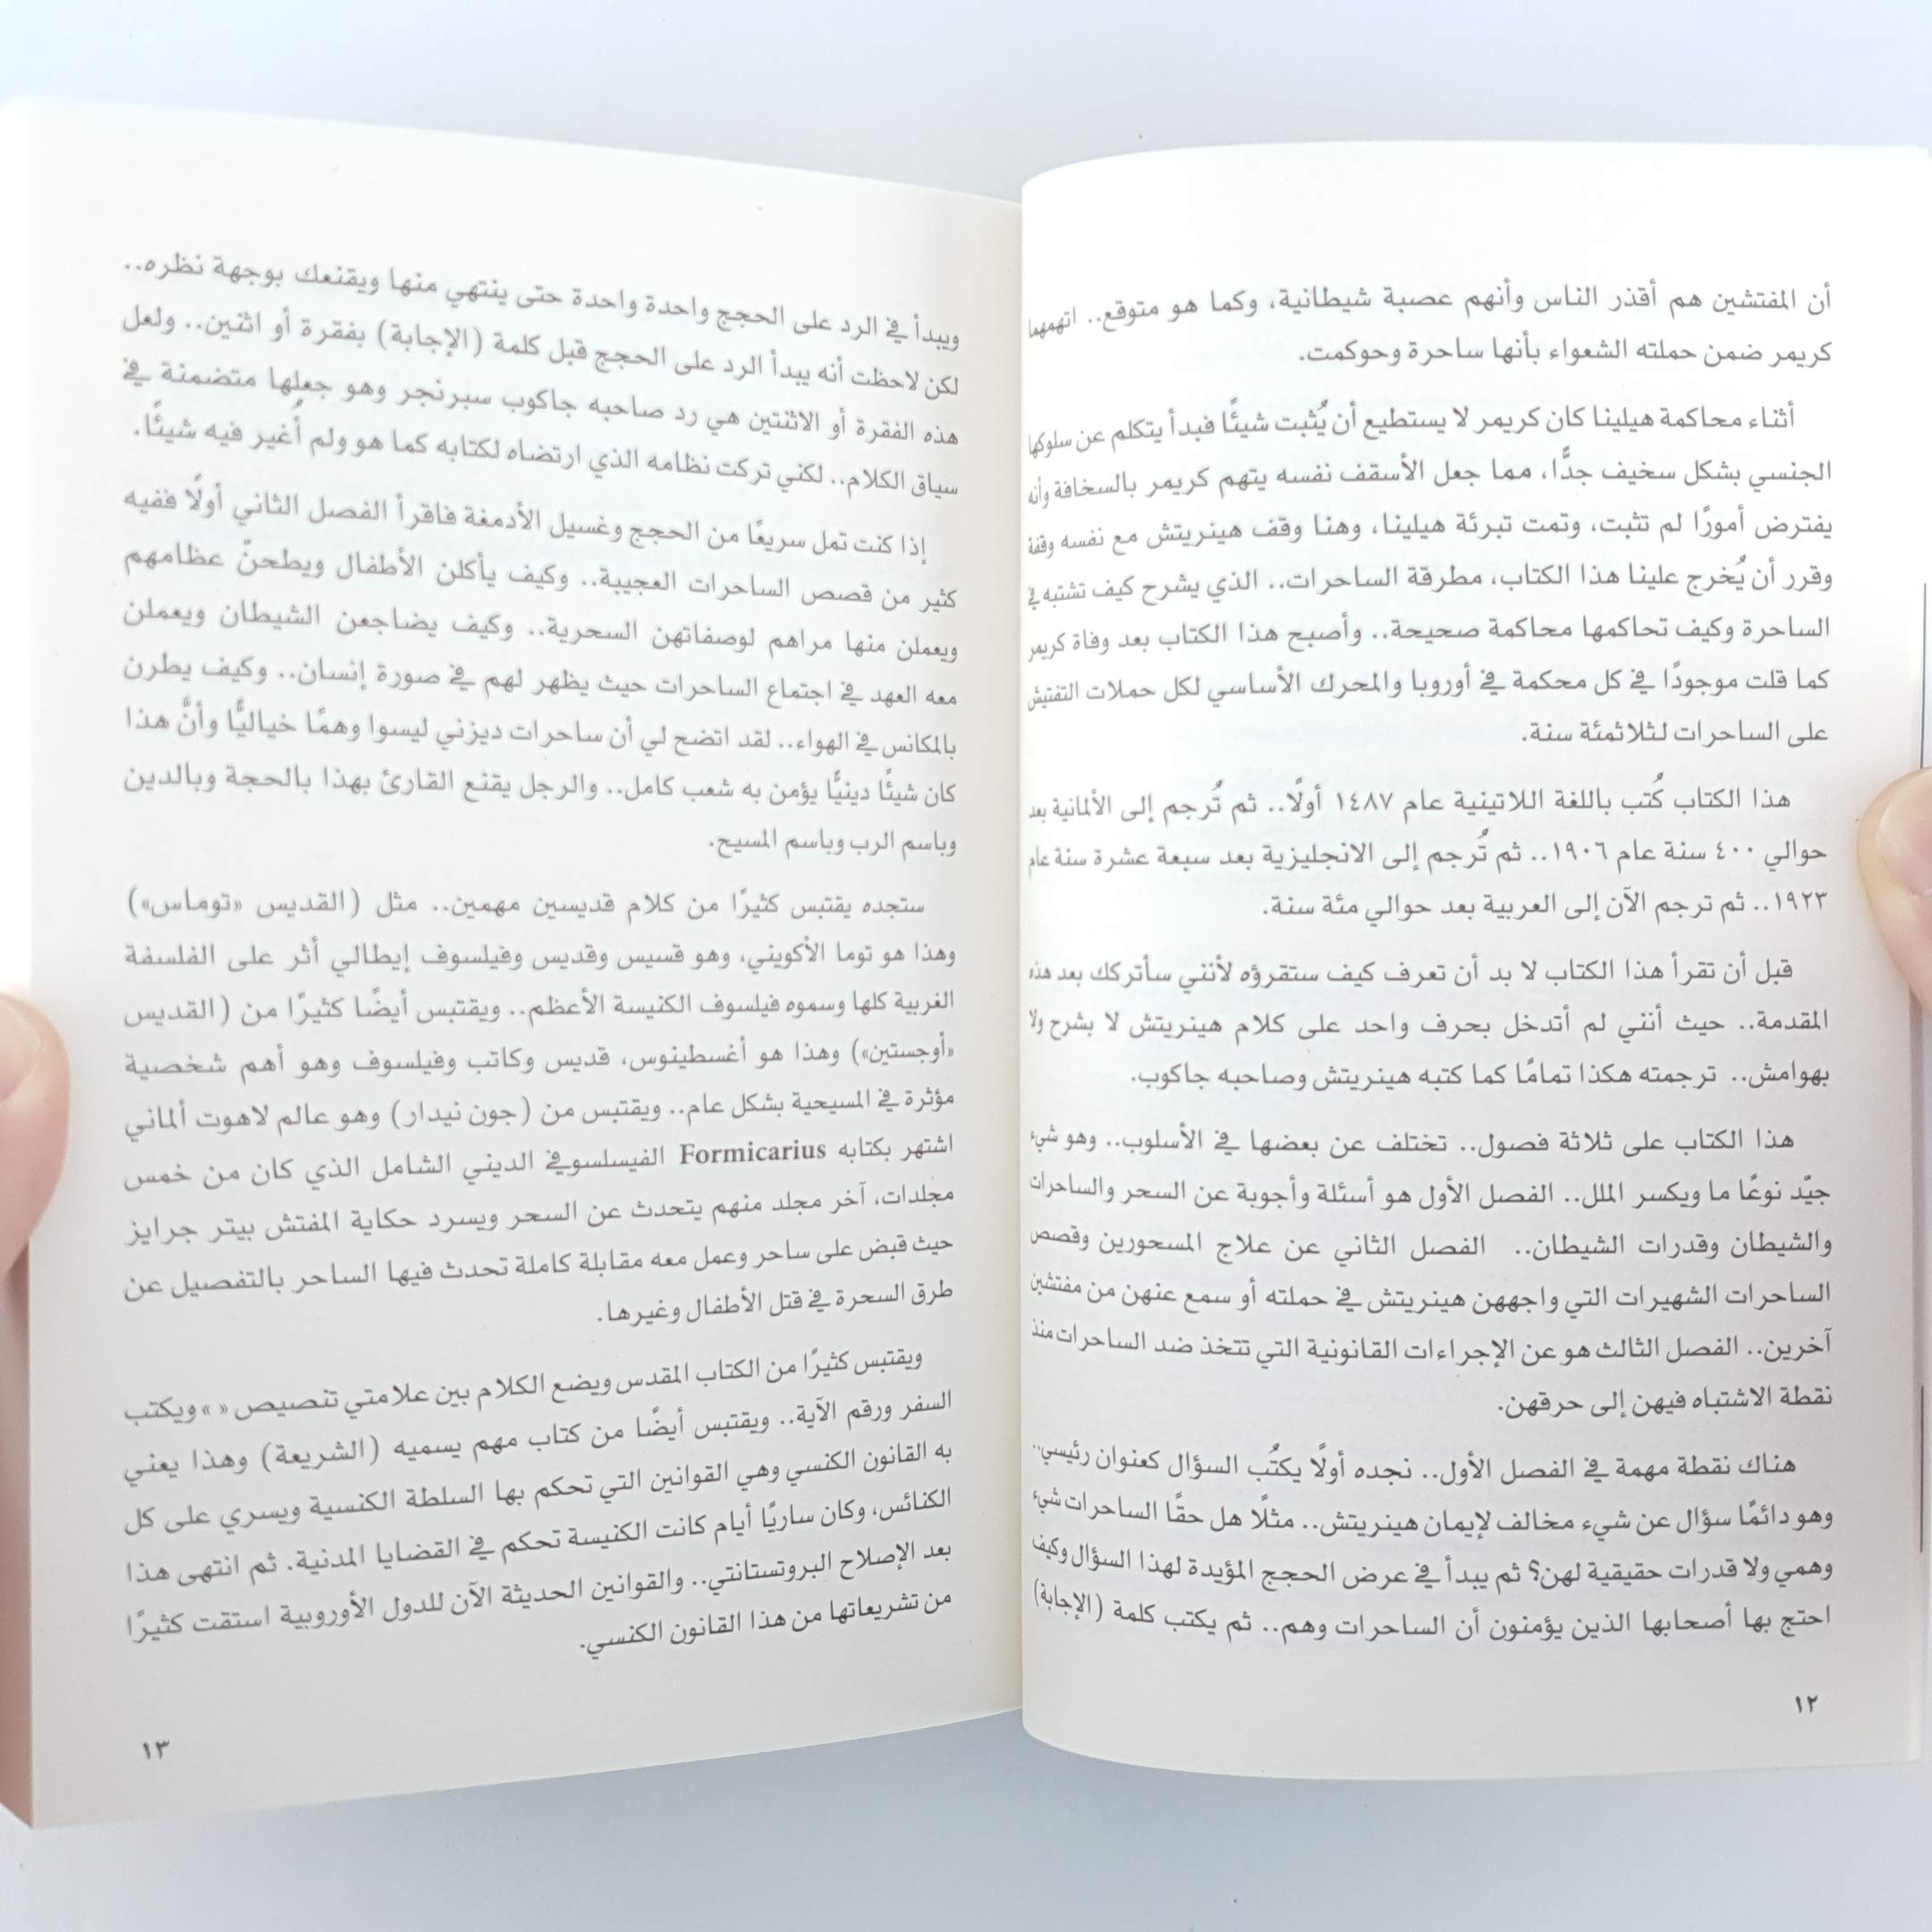 أن المفتشين هم أقذر الناس وأنهم عصبة شيطانية، وكما هو متوقع.. اتهمهما
كريمر ضمن حملته الشعواء بأنها ساحرة وحوكمت.
أثناء محاكمة هيلينا كان كريمر لا يستطيع أن يُثبت شيئًا فبدأ يتكلم عن سلوكها
الجنسي بشكل سخيف جدًّا، مما جعل الأسقف نفسه يتهم كريمر بالسخافة وأنه
يفترض أمورًا لم تثبت، وتمت تبرئة هيلينا، وهنا وقف هينريتش مع نفسه وقفة
وقرر أن يُخرج علينا هذا الكتاب، مطرقة الساحرات.. الذي يشرح كيف تشتبه في
الساحرة وكيف تحاكمها محاكمة صحيحة.. وأصبح هذا الكتاب بعد وفاة كريمر
كما قلت موجودًا في كل محكمة في أوروبا والمحرك الأساسي لكل حملات التفتيش
على الساحرات لثلاثمئة سنة.
هذا الكتاب كُتب باللغة اللاتينية عام ١٤٨٧ أولًا.. ثم تُرجم إلى الألمانية بعد
حوالي ٤٠٠ سنة عام ١٩٠٦.. ثم تُرجم إلى الانجليزية بعد سبعة عشرة سنة عام
١٩٢٣.. ثم ترجم الآن إلى العربية بعد حوالي مئة سنة.
قبل أن تقرأ هذا الكتاب لا بد أن تعرف كيف ستقرؤه لأنني سأتركك بعد هذه
المقدمة.. حيث أنني لم أتدخل بحرف واحد على كلام هينريتش لا بشرح ولا
بهوامش.. ترجمته هكذا تمامًا كما كتبه هينريتش وصاحبه جاكوب.
هذا الكتاب على ثلاثة فصول.. تختلف عن بعضها في الأسلوب.. وهو شيء
جيّد نوعًا ما ويكسر الملل.. الفصل الأول هو أسئلة وأجوبة عن السحر والساحرات
والشيطان وقدرات الشيطان.. الفصل الثاني عن علاج المسحورين وقصص
الساحرات الشهيرات التي واجههن هينريتش في حملته أو سمع عنهن من مفتشين
آخرين.. الفصل الثالث هو عن الإجراءات القانونية التي تتخذ ضد الساحرات منذ
نقطة الاشتباه فيهن إلى حرقهن.
هناك نقطة مهمة في الفصل الأول.. نجده أولًا يكتُب السؤال كعنوان رئيسي..
وهو دائمًا سؤال عن شيء مخالف لإيمان هينريتش.. مثلًا هل حقًا الساحرات شيء
وهمي ولا قدرات حقيقية لهن؟ ثم يبدأ في عرض الحجج المؤيدة لهذا السؤال وكيف
احتج بها أصحابها الذين يؤمنون أن الساحرات وهم.. ثم يكتب كلمة (الإجابة)
١٢
ويبدأ في الرد على الحجج واحدة واحدة حتى ينتهي منها ويقنعك بوجهة نظره..
لكن لاحظت أنه يبدأ الرد على الحجج قبل كلمة (الإجابة) بفقرة أو اثنين.. ولعل
هذه الفقرة أو الاثنتين هي رد صاحبه جاكوب سبرنجر وهو جعلها متضمنة في
سياق الكلام.. لكني تركت نظامه الذي ارتضاه لكتابه كما هو ولم أُغير فيه شيئًا.
إذا كنت تمل سريعًا من الحجج وغسيل الأدمغة فاقرأ الفصل الثاني أولًا ففيه
كثير من قصص الساحرات العجيبة.. وكيف يأكلن الأطفال ويطحنّ عظامهم
ويعملن منها مراهم لوصفاتهن السحرية.. وكيف يضاجعن الشيطان ويعملن
معه العهد في اجتماع الساحرات حيث يظهر لهم في صورة إنسان.. وكيف يطرن
بالمكانس في الهواء.. لقد اتضح لي أن ساحرات ديزني ليسوا وهمًا خياليًّا وأنَّ هذا
كان شيئًا دينيًّا يؤمن به شعب كامل.. والرجل يقنع القارئ بهذا بالحجة وبالدين
وباسم الرب وباسم المسيح.
ستجده يقتبس كثيرًا من كلام قديسين مهمين.. مثل (القديس «توماس»)
وهذا هو توما الأكويني، وهو قسيس وقديس وفيلسوف إيطالي أثر على الفلسفة
الغربية كلها وسموه فيلسوف الكنيسة الأعظم.. ويقتبس أيضًا كثيرًا من (القديس
«أوجستين») وهذا هو أغسطينوس، قديس وكاتب وفيلسوف وهو أهم شخصية
مؤثرة في المسيحية بشكل عام.. ويقتبس من (جون نيدار) وهو عالم لاهوت ألماني
اشتهر بكتابه Formicarius الفيسلسوفي الديني الشامل الذي كان من خمس
مجلدات، آخر مجلد منهم يتحدث عن السحر ويسرد حكاية المفتش بيتر جرايز
حيث قبض على ساحر وعمل معه مقابلة كاملة تحدث فيها الساحر بالتفصيل عن
طرق السحرة في قتل الأطفال وغيرها.
ويقتبس كثيرًا من الكتاب المقدس ويضع الكلام بين علامتي تنصيص « » ويكتب
السفر ورقم الآية.. ويقتبس أيضًا من كتاب مهم يسميه (الشريعة) وهذا يعني
به القانون الكنسي وهي القوانين التي تحكم بها السلطة الكنسية ويسري على كل
الكنائس، وكان ساريًا أيام كانت الكنيسة تحكم في القضايا المدنية. ثم انتهى هذا
بعد الإصلاح البروتستانتي.. والقوانين الحديثة الآن للدول الأوروبية استقت كثيرًا
من تشريعاتها من هذا القانون الكنسي.
١٣